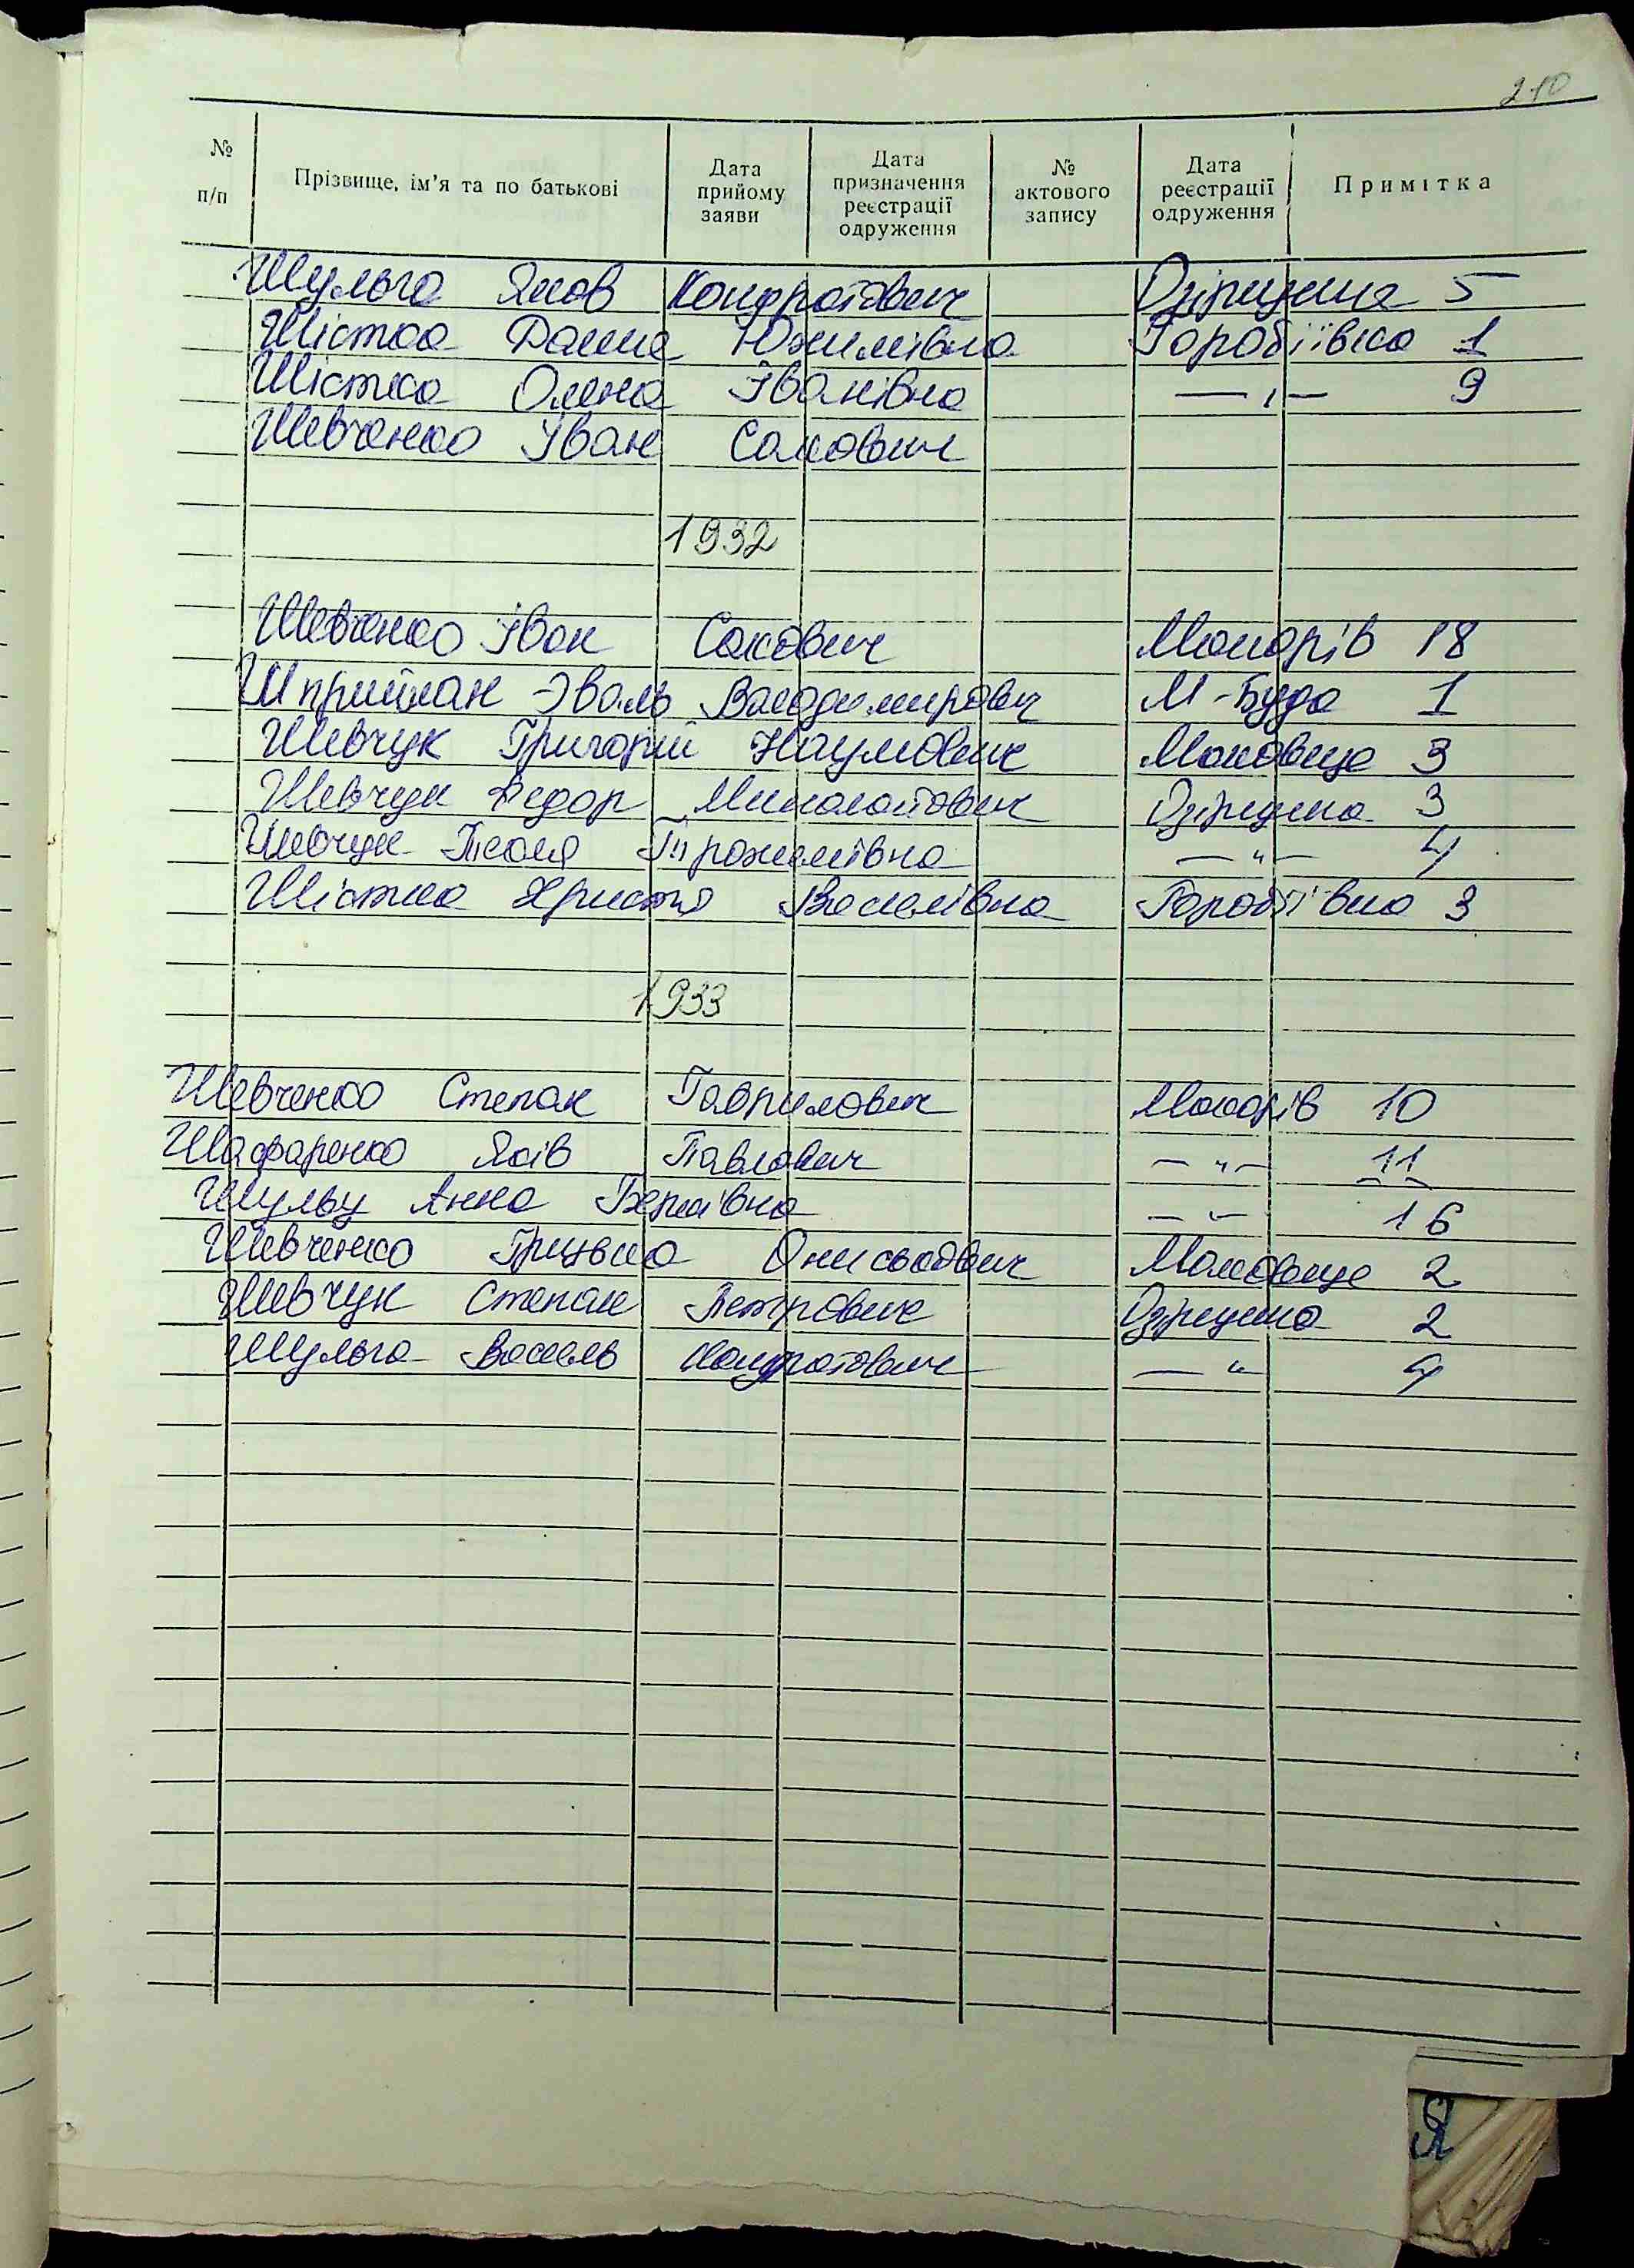 210
№ п/п
Прізвище, ім'я та по батькові
Дата прийому заяви
Дата призначення реєстрації одруження
№ актового запису
Дата реєстрації одруження
Примітка
Шульга Яков Кондратович 5
Шістка Юхимівна Горобіївка 1
Шістка Олена Іванівна — " — 9
Шевченко Іван Сакович
1932
Шевченко Іван Сакович Макарів 18
Володимирович М-Буда 1
Шевчук Григорій Наумович Маковище 3
Шевчук Федор 3
Шевчук Текля — " — 4
Шістка Христя Василівна Горобіївка 3
1933
Шевченко Степан Гаврилович Макарів 10
Шафаренко Яків Павлович — " — 11
Анна — " — 16
Шевченко Маковище 2
Шевчук Степан Петрович 2
Шульга Василь Кондратович — " 4
Я